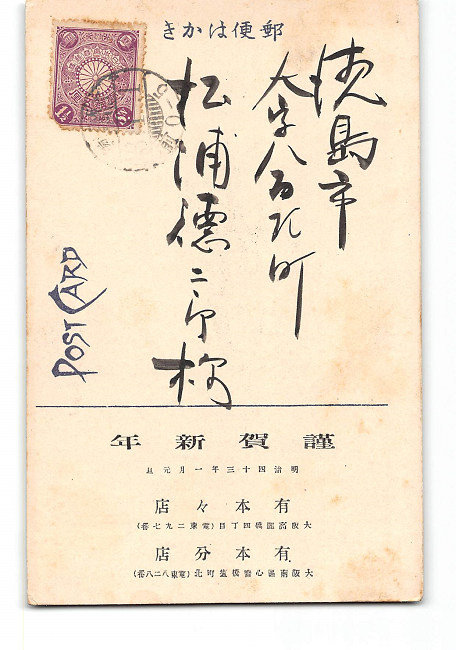 郵便はかき
徳島市
大字八百屋町
松浦德二郎様
POST CARD
謹賀新年
明治四十三年一月元旦
有本々店
大阪高麗橋四丁目(電東二九七番)
有本分店
大阪南區心齋橋筋町北(電東八二八番)